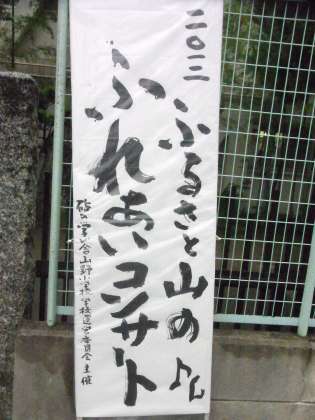 二〇一二
ふるさと山の
ふれあいコンサート
砧の学び舎山野小学校学校運営委員会主催